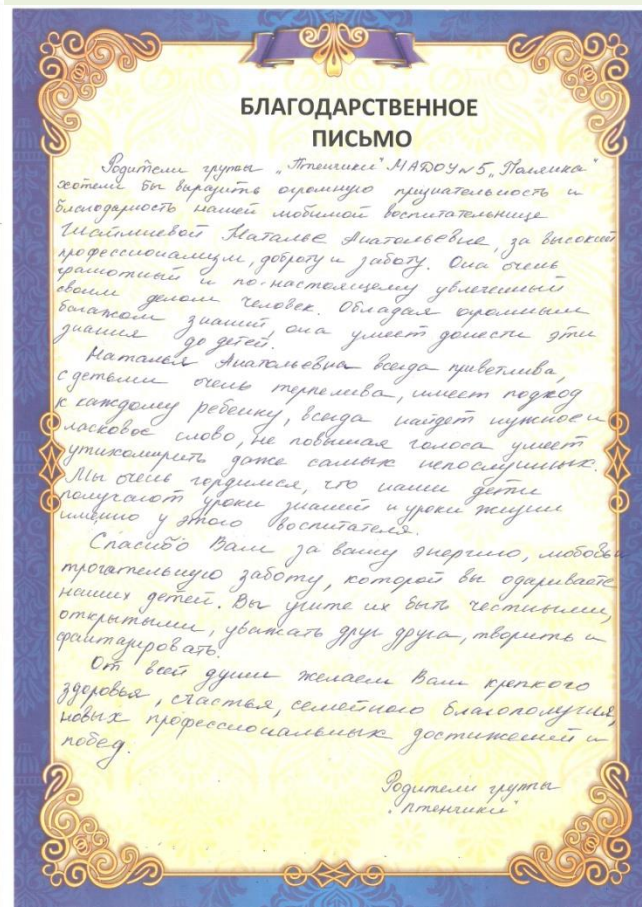 БЛАГОДАРСТВЕННОЕ
ПИСЬМО
Родители группы „Птенчики" МАДОУ №5 „Полянка"
хотели бы выразить огромную признательность и
благодарность нашей любимой воспитательнице
Наталье Анатольевне, за высокий
профессионализм, доброту и заботу. Она очень
грамотный и по-настоящему увлеченный
своим делом человек. Обладая огромным
багажом знаний, она умеет донести эти
знания до детей.
Наталья Анатольевна всегда приветлива,
с детьми очень терпелива, имеет подход
к каждому ребенку, всегда найдет нужное и
ласковое слово, не повышая голоса умеет
утихомирить даже самых непослушных.
Мы очень гордимся, что наши дети
получают уроки знаний и уроки жизни
именно у этого воспитателя.
Спасибо Вам за вашу энергию, любовь и
трогательную заботу, которой вы одариваете
наших детей. Вы учите их быть честными,
открытыми, уважать друг друга, творить и
фантазировать.
От всей души желаем Вам крепкого
здоровья, счастья, семейного благополучия,
новых профессиональных достижений и
побед.
Родители группы
„Птенчики"